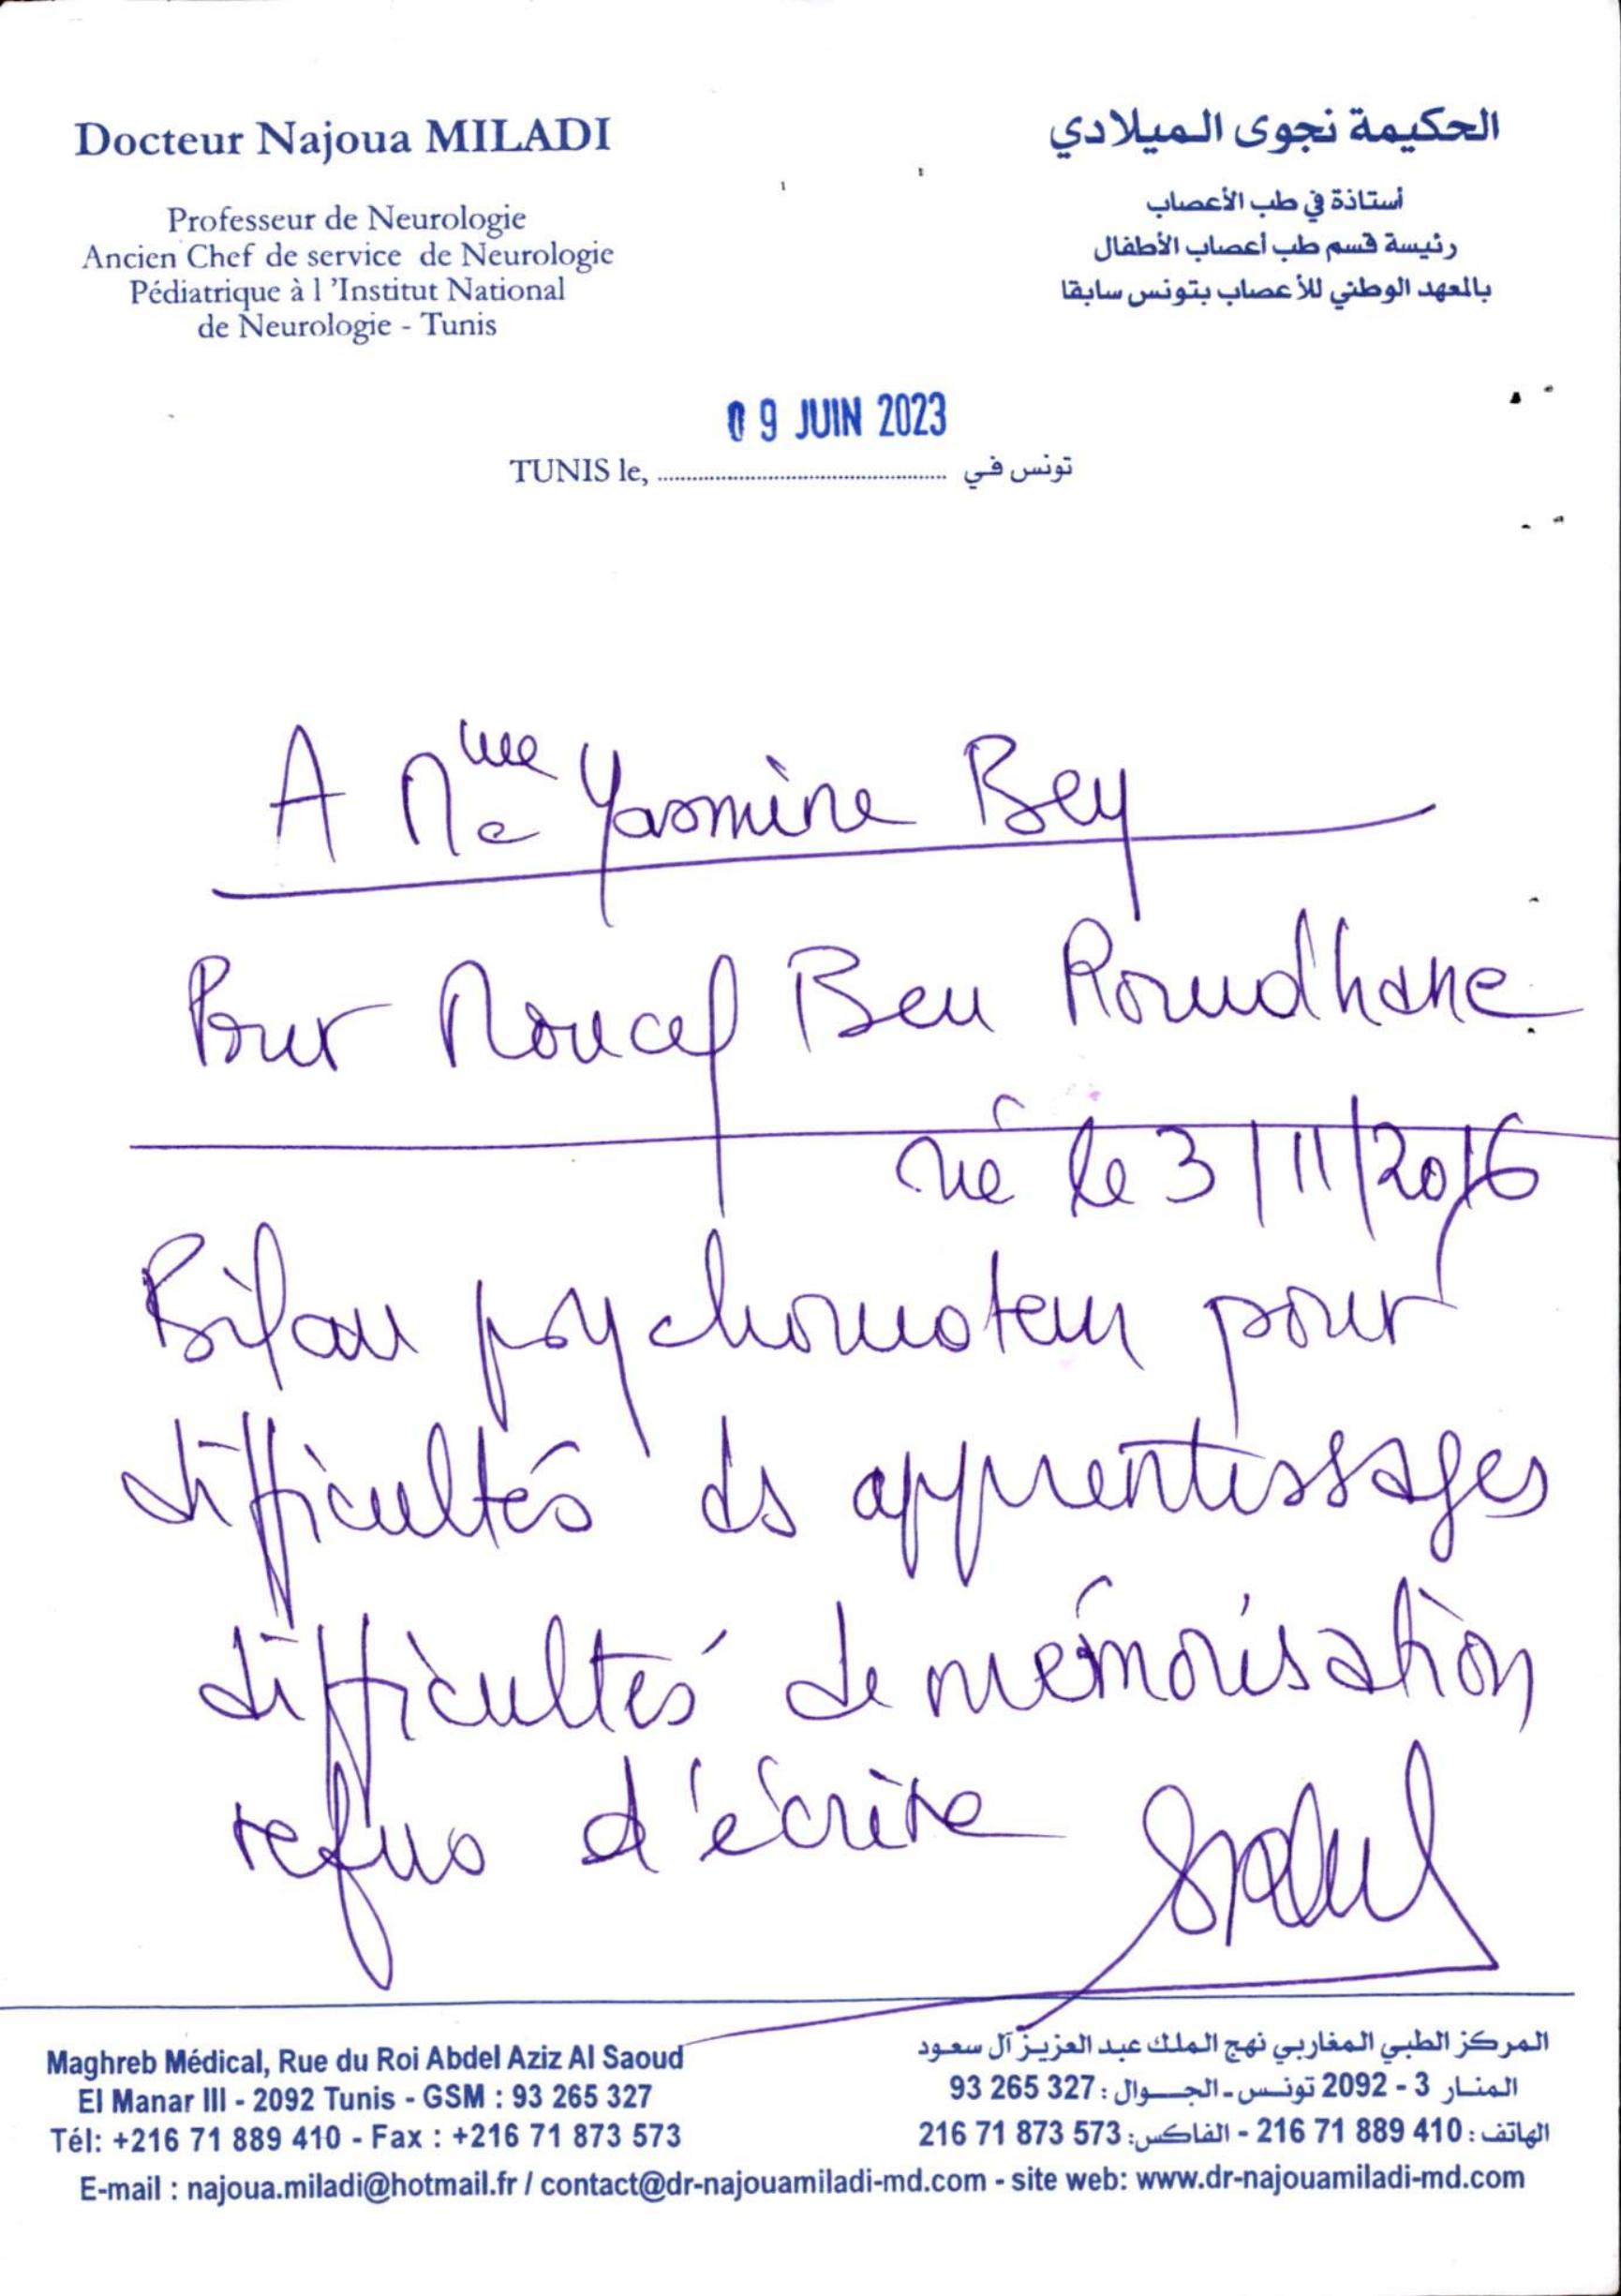 Docteur Najoua MILADI
Professeur de Neurologie
Ancien Chef de service de Neurologie
Pédiatrique à l 'Institut National
de Neurologie - Tunis
الحكيمة نجوى الميلادي
أستاذة في طب الأعصاب
رئيسة قسم طب أعصاب الأطفال
بالمعهد الوطني للأعصاب بتونس سابقا
09 JUIN 2023
TUNIS le, ........................................ تونس في
A Mme Yasmine Bey
Pour Moncef Ben Romdhane
né le 3/11/2016
Bilan psychomoteur pour
difficultés ds apprentissages
difficultés de mémorisation
refus d'écrire
Maghreb Médical, Rue du Roi Abdel Aziz Al Saoud
El Manar III - 2092 Tunis - GSM : 93 265 327
Tél: +216 71 889 410 - Fax : +216 71 873 573
المركز الطبي المغاربي نهج الملك عبد العزيز آل سعود
المنار 3 - 2092 تونس - الجوال : 327 265 93
الهاتف : 410 889 71 216 - الفاكس: 573 873 71 216
E-mail : najoua.miladi@hotmail.fr / contact@dr-najouamiladi-md.com - site web: www.dr-najouamiladi-md.com